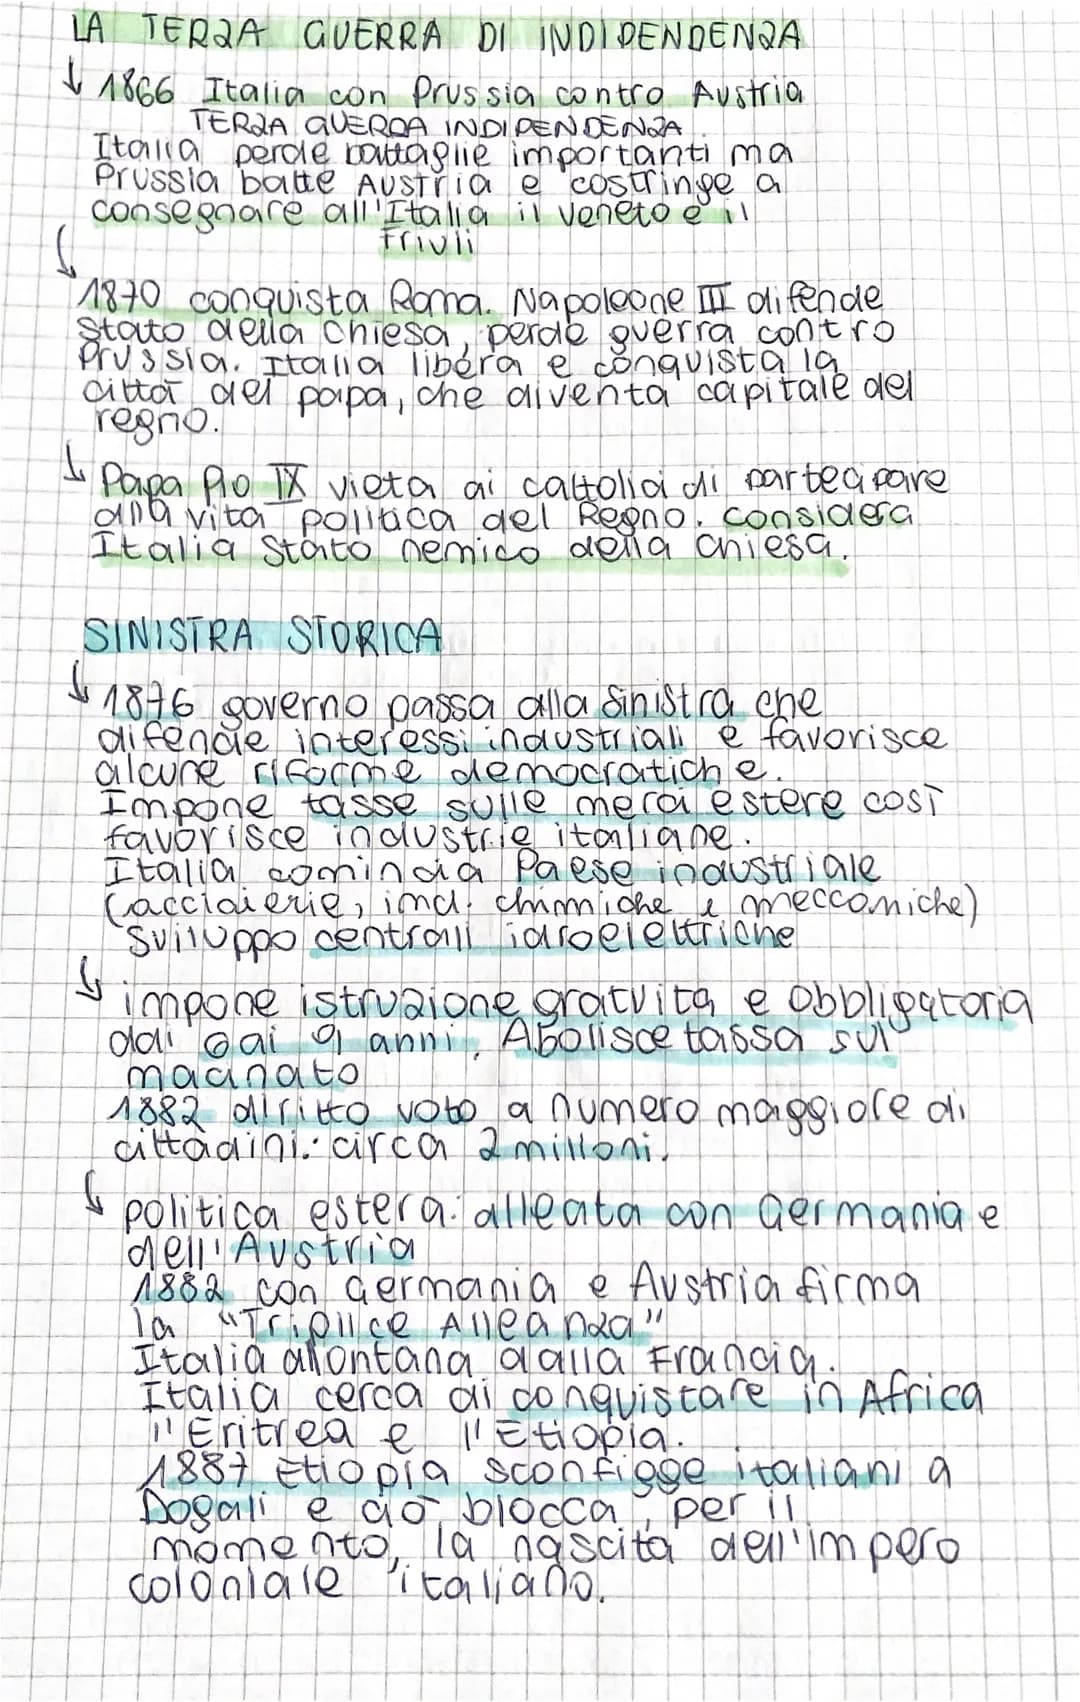 LA TERZA GUERRA DI INDIPENDENZA
↓ 1866 Italia con Prussia contro Austria
TERZA GUERRA INDIPENDENZA.
Italia perde battaglie importanti ma
Prussia batte Austria e costringe a
consegnare all'Italia il veneto e il
Friuli
↓ 1870 conquista Roma. Napoleone III difende
Stato della Chiesa, perde guerra contro
Prussia. Italia libera e conquista la
città del papa, che diventa capitale del
regno.
↓ Papa Pio IX vieta ai cattolici di partecipare
alla vita politica del Regno. considera
Italia Stato nemico della Chiesa.
SINISTRA STORICA
↓ 1876 governo passa alla Sinistra che
difende interessi industriali e favorisce
alcune riforme democratiche.
Impone tasse sulle merci estere così
favorisce industrie italiane.
Italia comincia Paese industriale
(acciaierie, ind. chimiche e meccaniche)
Sviluppo centrali idroelettriche
↓ impone istruzione gratuita e obbligatoria
dai 6 ai 9 anni. Abolisce tassa sul
macinato
1882 diritto voto a numero maggiore di
cittadini: circa 2 milioni.
↓ politica estera: alleata con Germania e
dell'Austria
1882 con Germania e Austria firma
la "Triplice Alleanza"
Italia allontana dalla Francia.
Italia cerca di conquistare in Africa
l'Eritrea e l'Etiopia.
1887 Etiopia sconfigge italiani a
Dogali e ciò blocca, per il
momento, la nascita dell'impero
coloniale italiano.